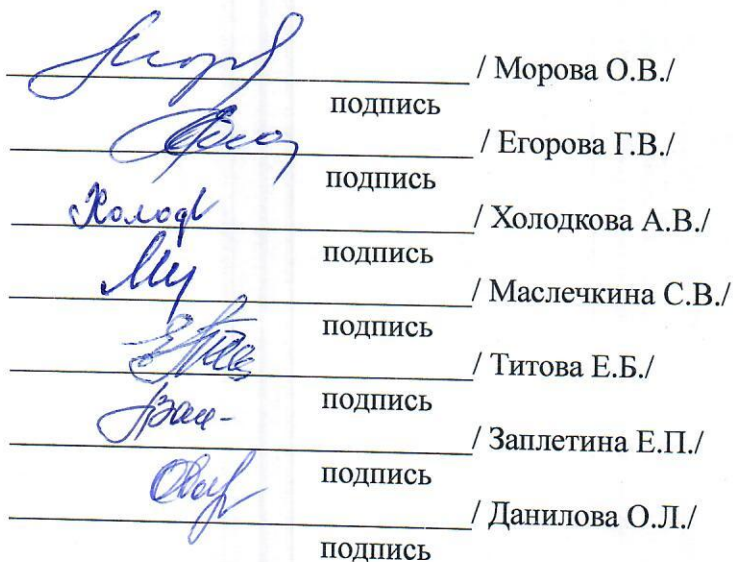 / Морова О.В./
подпись
/ Егорова Г.В./
подпись
Холод / Холодкова А.В./
подпись
/ Маслечкина С.В./
подпись
/ Титова Е.Б./
подпись
/ Заплетина Е.П./
подпись
/ Данилова О.Л./
подпись